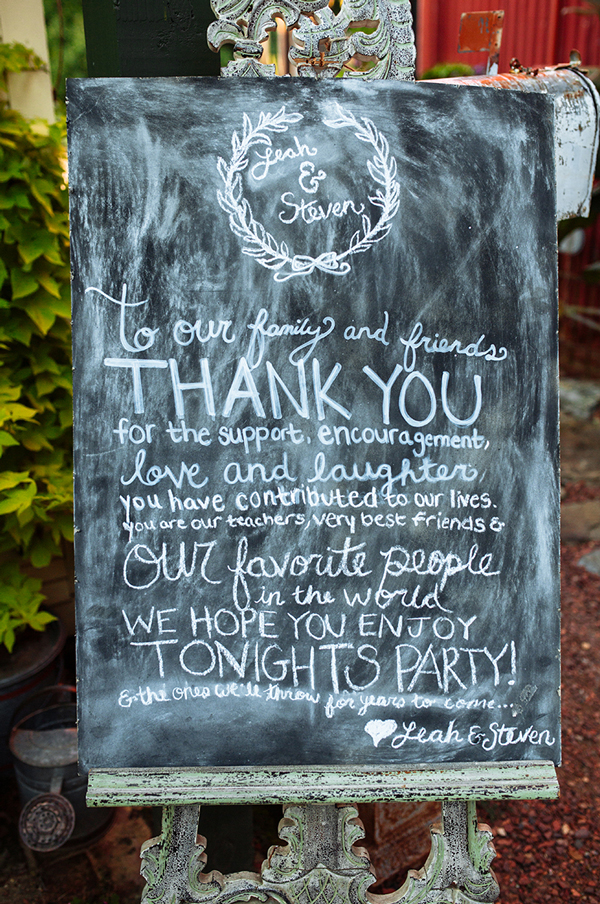 Leah
&
Steven
To our family and friends
THANK YOU
for the support, encouragement,
love and laughter
you have contributed to our lives.
you are our teachers, very best friends &
our favorite people
in the world
WE HOPE YOU ENJOY
TONIGHTS PARTY!
& the ones we'll throw for years to come...
Leah & Steven